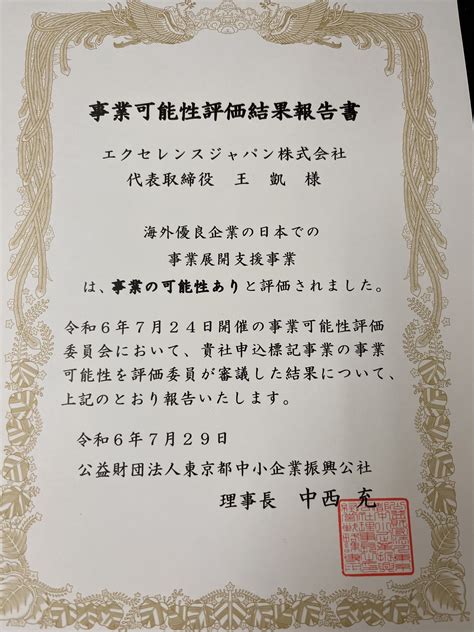 事業可能性評価結果報告書
エクセレンスジャパン株式会社
代表取締役 王 凱 様
海外優良企業の日本での
事業展開支援事業
は、事業の可能性ありと評価されました。
令和６年７月２４日開催の事業可能性評価
委員会において、貴社申込標記事業の事業
可能性を評価委員が審議した結果について、
上記のとおり報告いたします。
令和６年７月２９日
公益財団法人東京都中小企業振興公社
理事長 中西 充